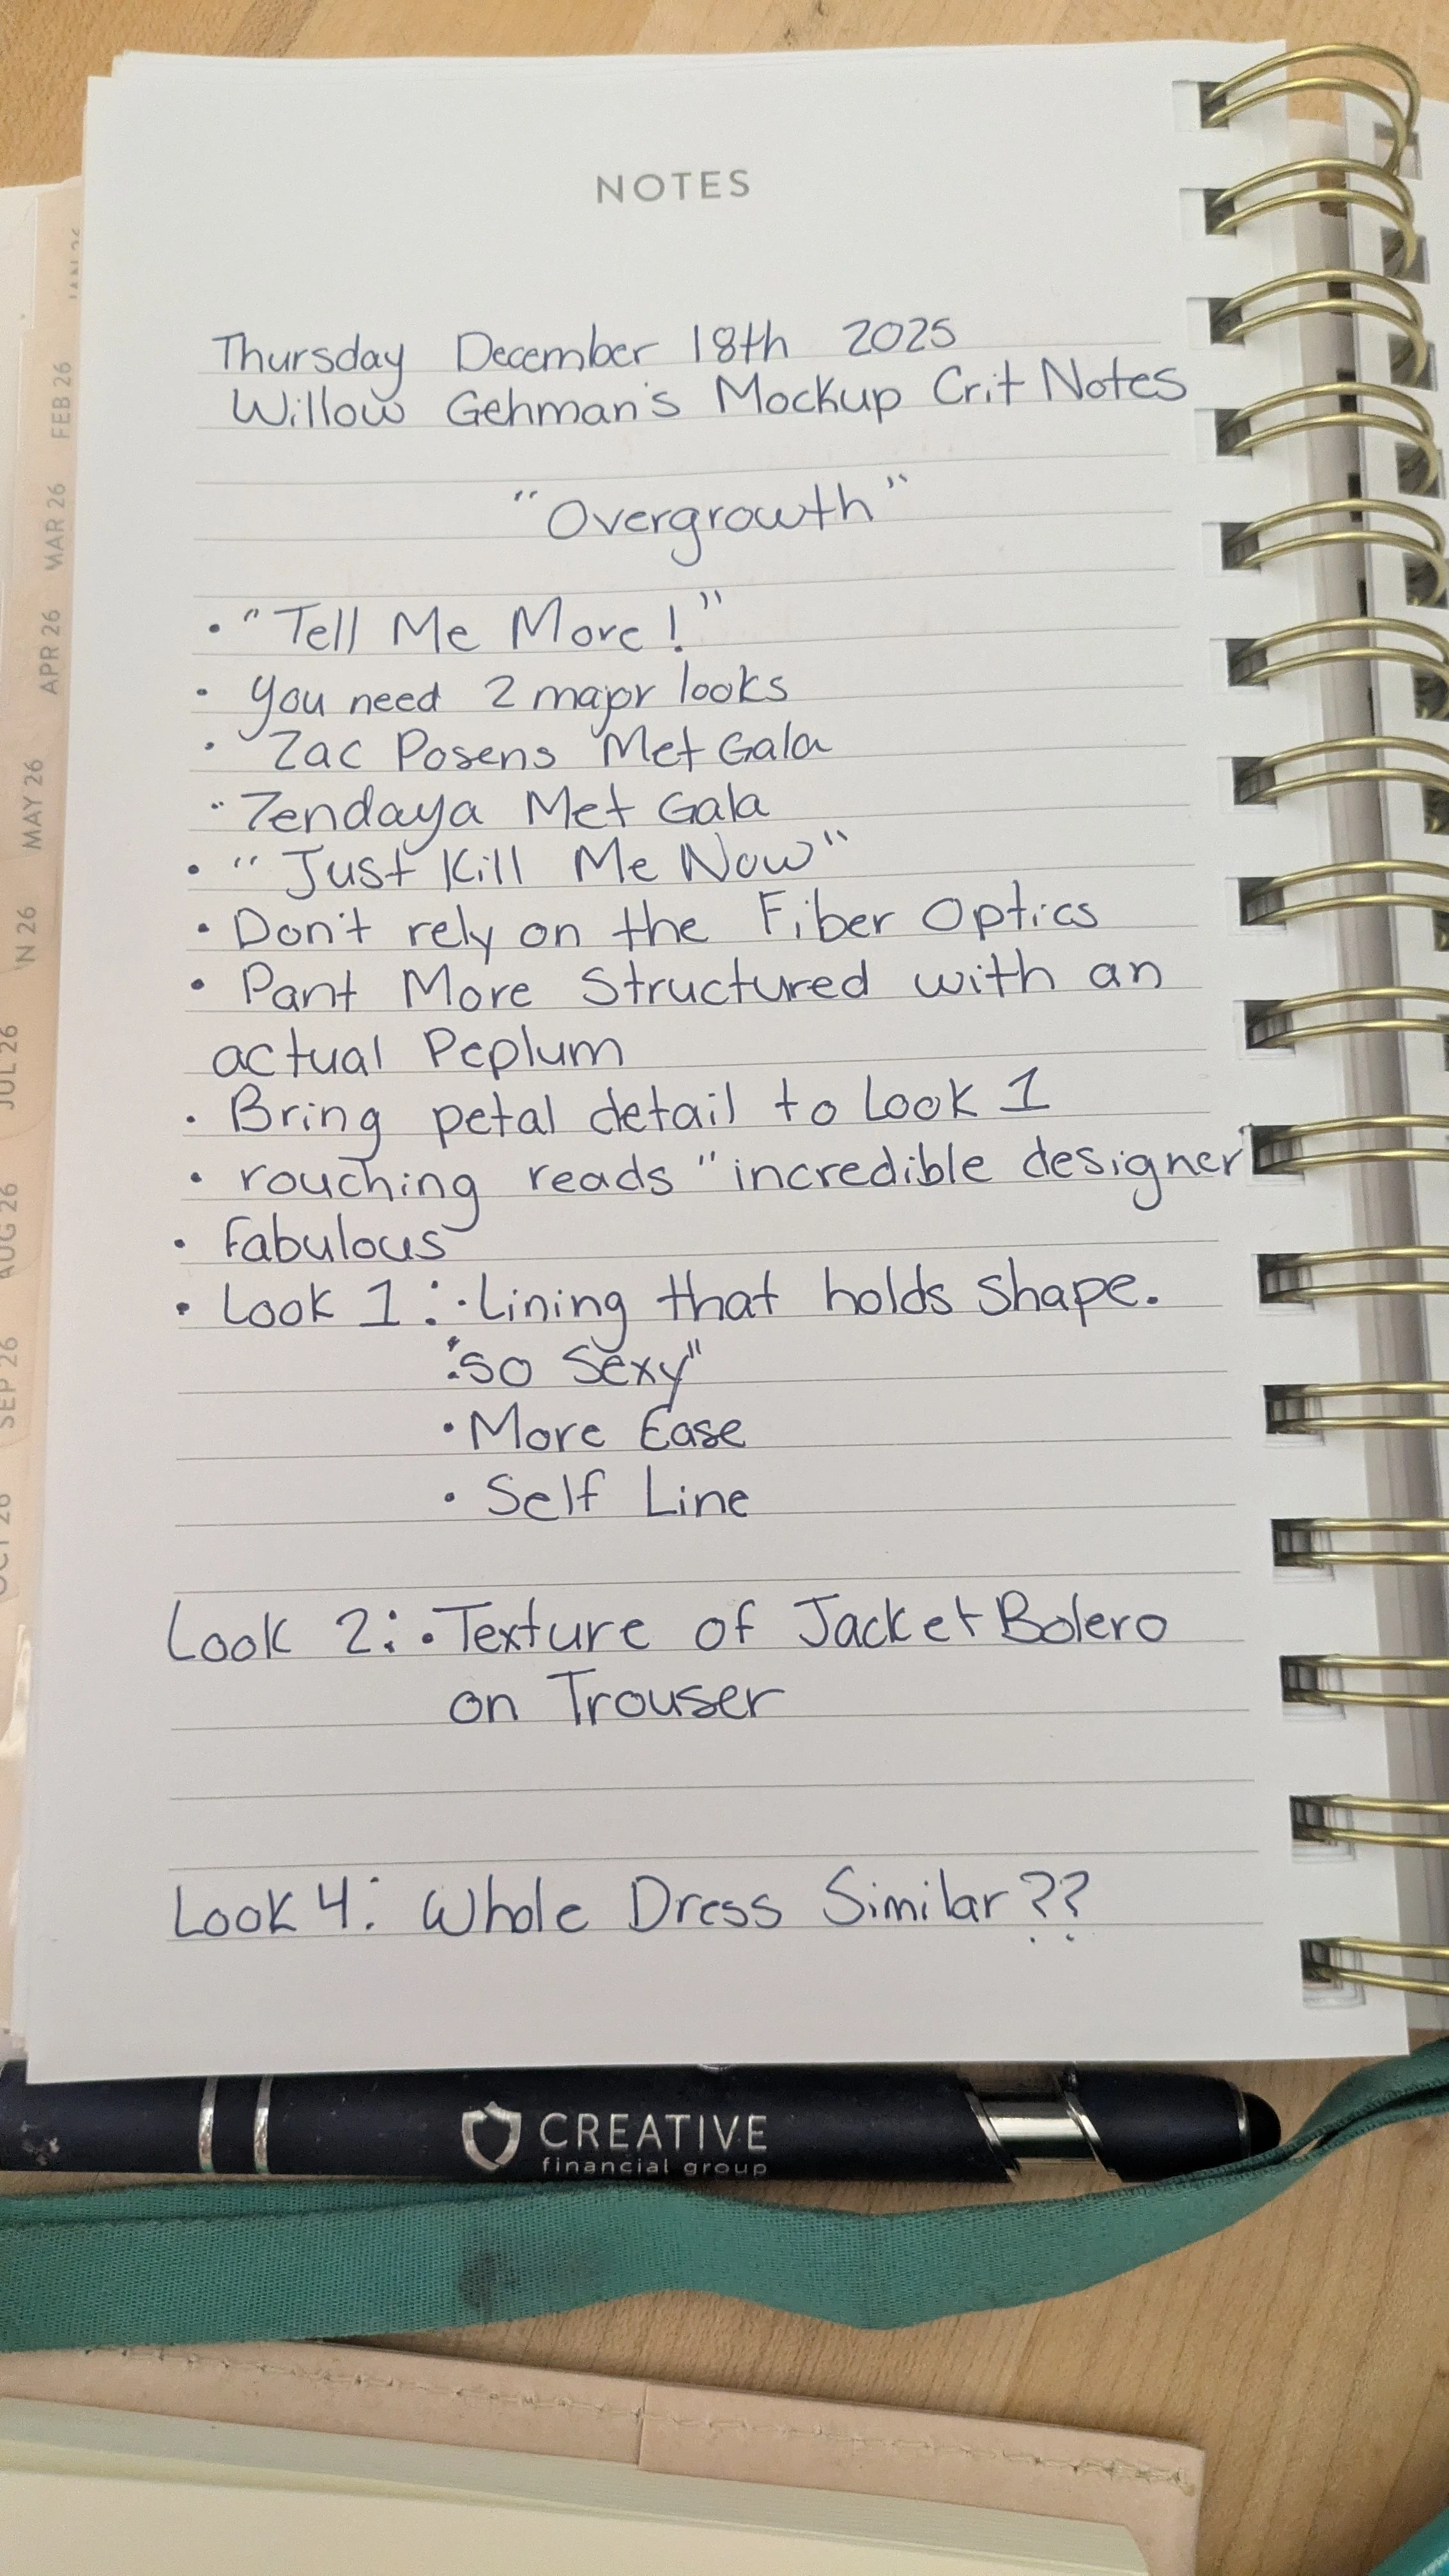 NOTES
Thursday December 18th 2025
Willow Gehman's Mockup Crit Notes
"Overgrowth"
• "Tell Me More!"
• you need 2 major looks
• Zac Posens Met Gala
• Zendaya Met Gala
• "Just Kill Me Now"
• Don't rely on the Fiber Optics
• Pant More Structured with an
actual Peplum
• Bring petal detail to Look 1
• rouching reads "incredible designer"
• Fabulous
• Look 1: • Lining that holds shape.
• "so Sexy"
• More Ease
• Self Line
Look 2: • Texture of Jacket Bolero
on Trouser
Look 4: Whole Dress Similar??
CREATIVE
financial group
FEB 26
MAR 26
APR 26
MAY 26
JUL 26
AUG 26
SEP 26
OCT 26